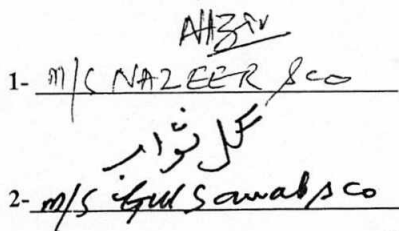 Nazir
1- M/S NAZEER & CO
گل ثواب
2- M/S Gul Sawab & CO